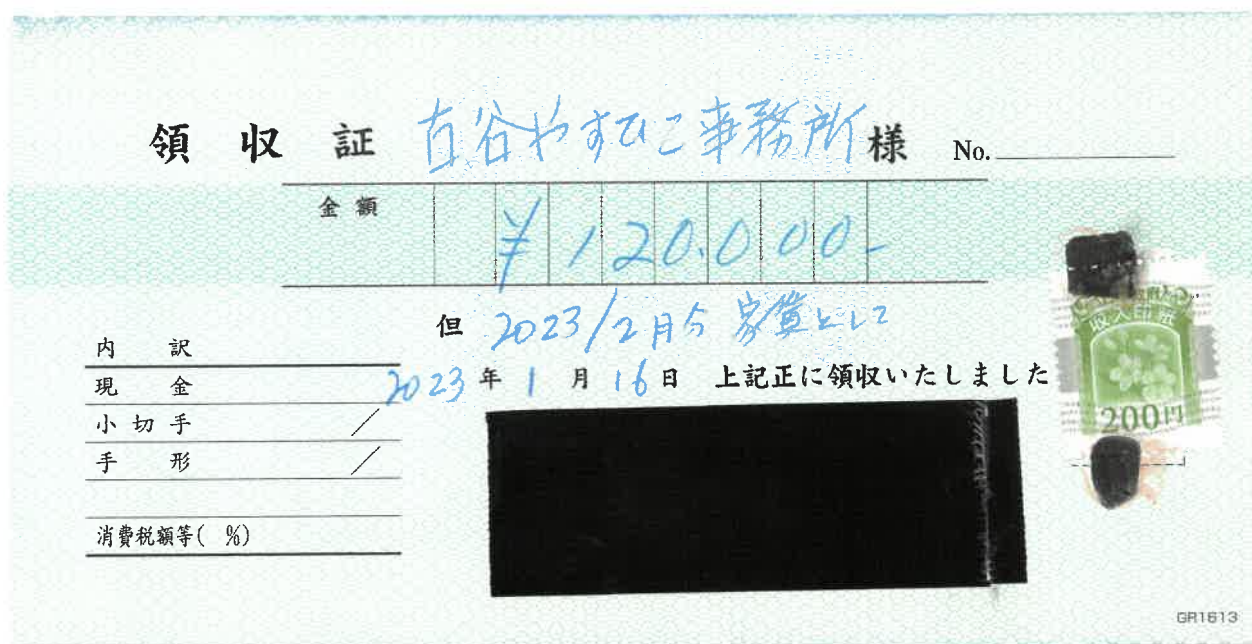 領収証 古谷やすひこ事務所 様 No.
金額 ¥120.000-
但 2023/2月分 家賃として
2023年1月16日 上記正に領収いたしました
内訳
現金
小切手 /
手形 /
消費税額等( %)
収入印紙
200円
GR1613